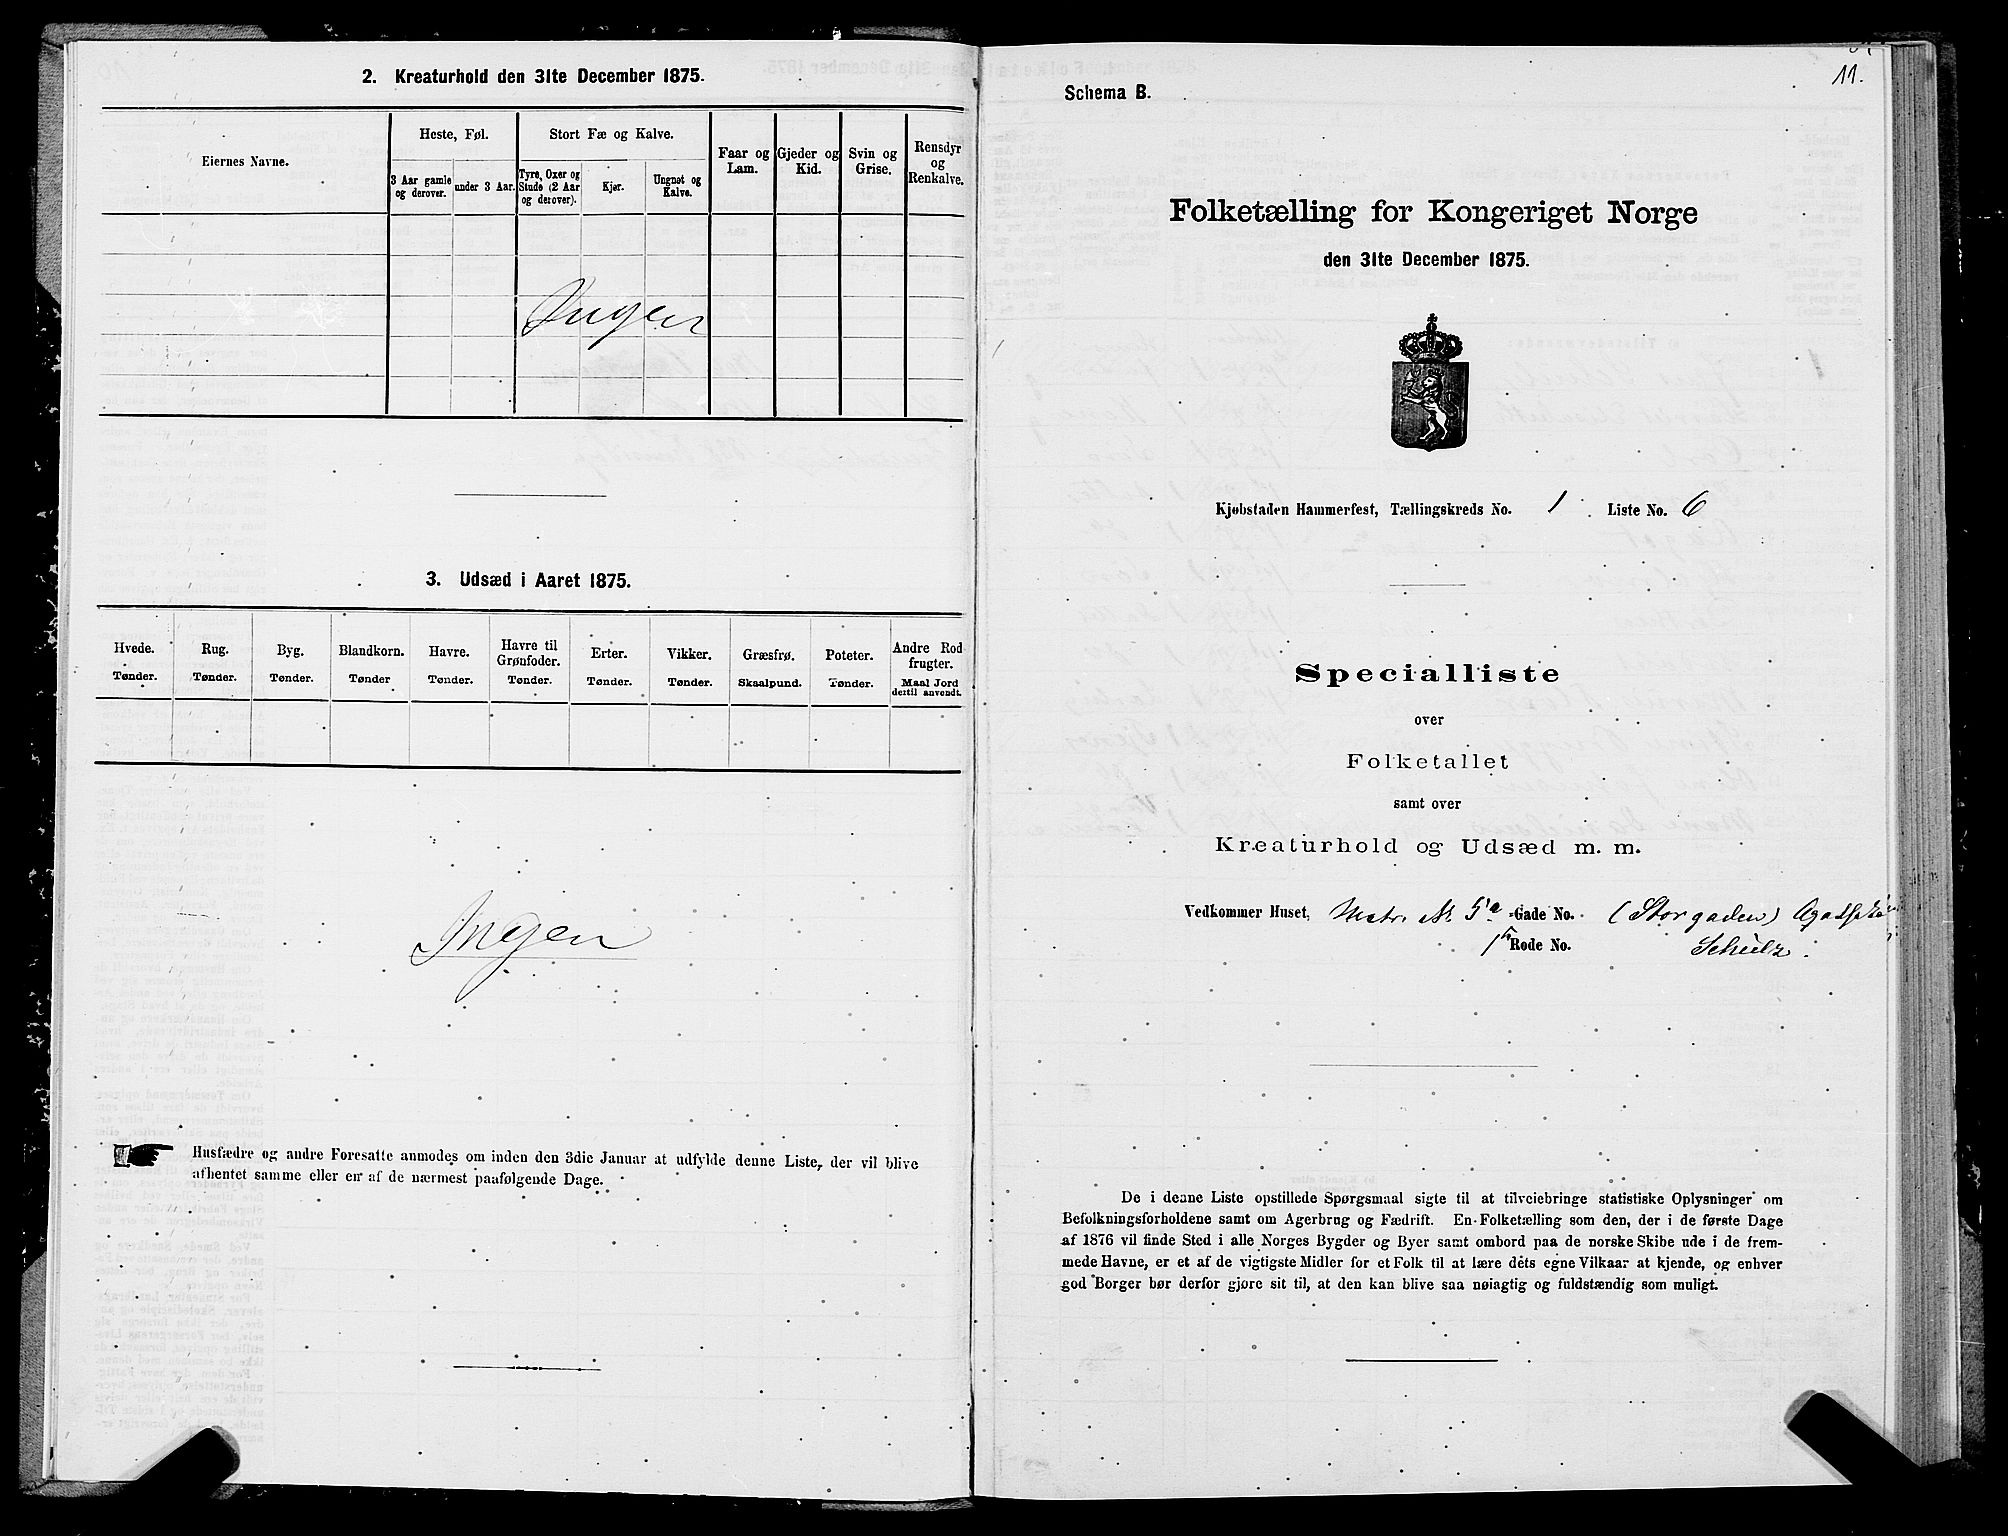 2. Kreaturhold den 31te December 1875.
Eiernes Navne.
Heste, Føl.
Stort Fæ og Kalve.
Faar og Lam.
Gjeder og Kid.
Svin og Grise.
Rensdyr og Renkalve.
3 Aar gamle og derover.
under 3 Aar.
Tyre, Oxer og Stude (2 Aar og derover).
Kjør.
Ungnøt og Kalve.
Ingen
3. Udsæd i Aaret 1875.
Hvede. Tønder.
Rug. Tønder.
Byg. Tønder.
Blandkorn. Tønder
Havre. Tønder.
Havre til Grønfoder. Tønder.
Erter. Tønder.
Vikker. Tønder.
Græsfrø. Skaalpund.
Poteter. Tønder.
Andre Rodfrugter. Maal Jord dertil anvendt.
Ingen
Husfædre og andre Foresatte anmodes om inden den 3die Januar at udfylde denne Liste, der vil blive
afhentet samme eller en af de nærmest paafølgende Dage.
11.
Schema B.
Folketælling for Kongeriget Norge
den 31te December 1875.
Kjøbstaden Hammerfest, Tællingskreds No. 1. Liste No. 6
Specialliste
over
Folketallet
samt over
Kreaturhold og Udsæd m. m.
Vedkommer Huset, Matr. № 5a Gade No. (Storgaden)
Rode No. Schulz.
De i denne Liste opstillede Spørgsmaal sigte til at tilveiebringe statistiske Oplysninger om
Befolkningsforholdene samt om Agerbrug og Fædrift. En Folketælling som den, der i de første Dage
af 1876 vil finde Sted i alle Norges Bygder og Byer samt ombord paa de norske Skibe ude i de frem-
mede Havne, er et af de vigtigste Midler for et Folk til at lære dets egne Vilkaar at kjende, og enhver
god Borger bør derfor gjøre sit til, at den kan blive saa nøiagtig og fuldstændig som muligt.